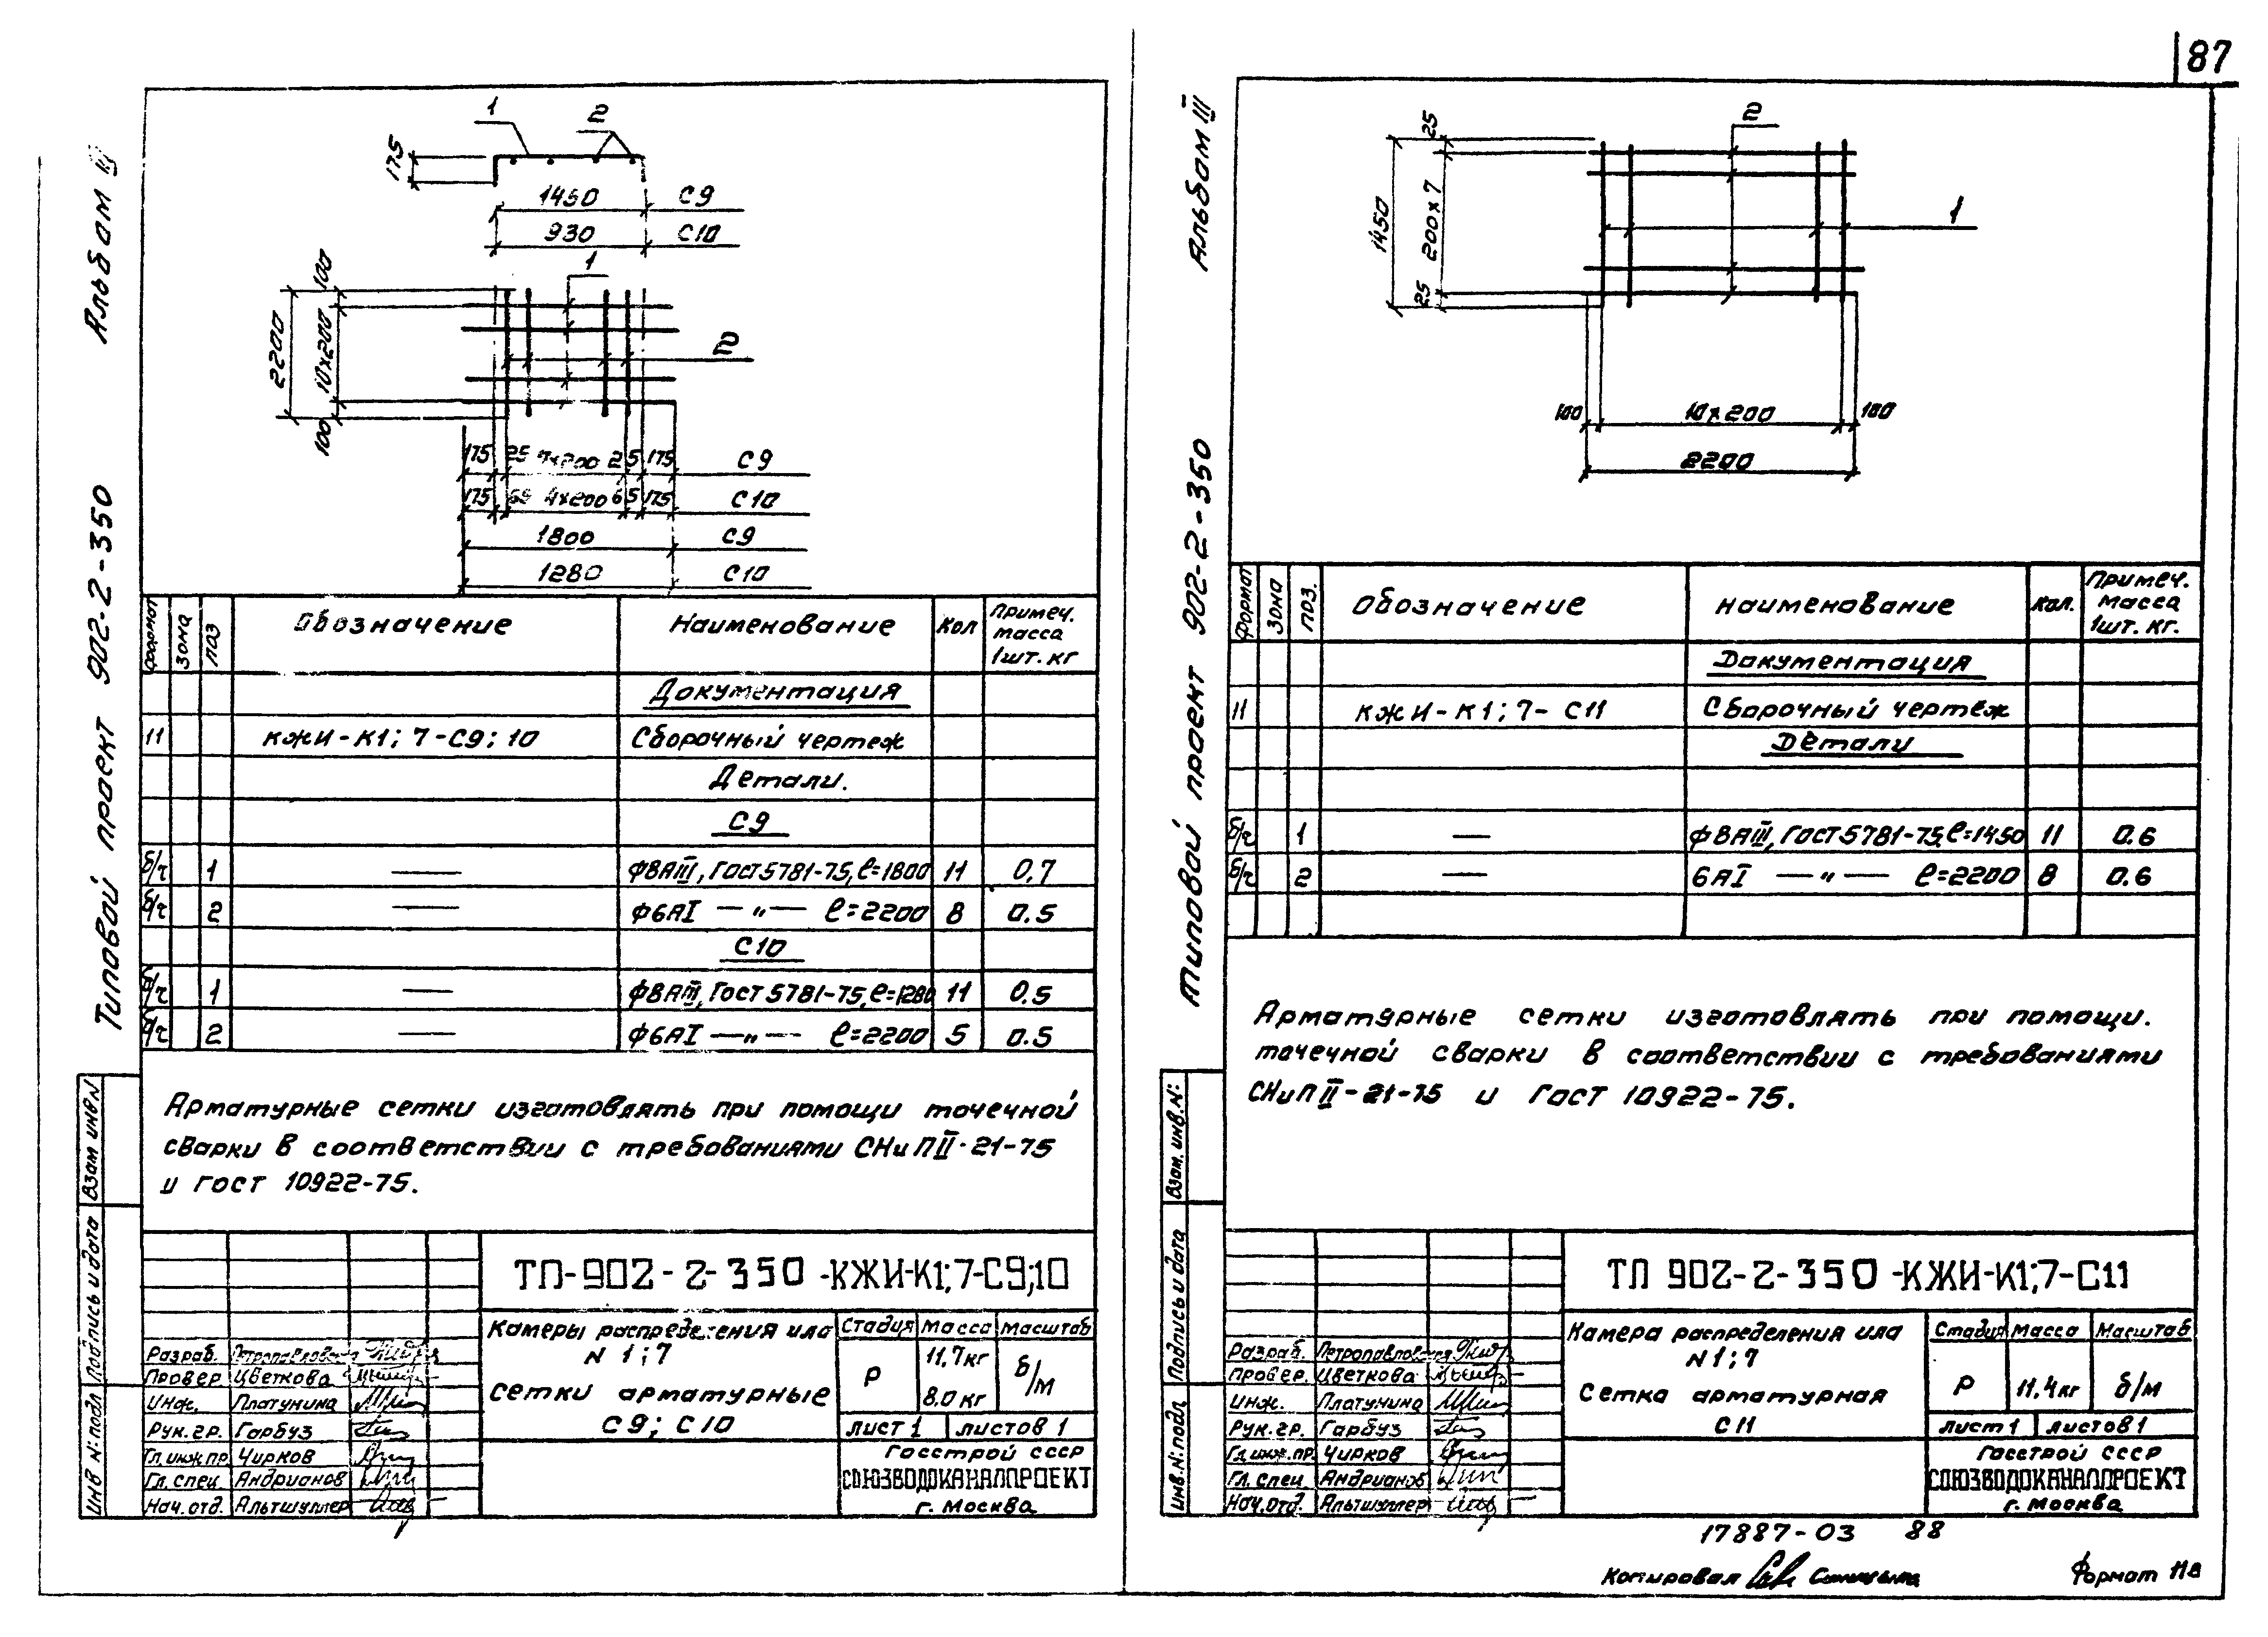 87
Альбом III
Типовой проект 902-2-350
1
2
175
1450 С9
930 С10
1
100
2200
10х200
100
2
175 25 7х200 25 175 С9
175 65 4х200 65 175 С10
1800 С9
1280 С10
формат зона поз Обозначение Наименование Кол Примеч. масса 1шт. кг
Документация
11 КЖИ-К1; 7-С9; 10 Сборочный чертеж
Детали.
С9
б/ч 1 — ф8АIII, ГОСТ 5781-75, ℓ=1800 11 0,7
б/ч 2 — ф6АI —"— ℓ=2200 8 0.5
С10
б/ч 1 — ф8АIII, ГОСТ 5781-75, ℓ=1280 11 0.5
б/ч 2 — ф6АI —"— ℓ=2200 5 0.5
Арматурные сетки изготовлять при помощи точечной
сварки в соответствии с требованиями СНиП II-21-75
и ГОСТ 10922-75.
Взам инв N
Подпись и дата
инв N: подл
ТП-902-2-350-КЖИ-К1;7-С9;10
Камеры распределения ила
N 1; 7
сетки арматурные
С9; С10
Стадия Масса Масштаб
Р 11,7кг б/м
8.0 кг
лист 1 листов 1
Госстрой СССР
СОЮЗВОДОКАНАЛПРОЕКТ
г. Москва
Разраб. Петропавловская
Провер Цветкова
Инж. Платунина
Рук. гр. Гарбуз
Гл. инж пр Чирков
Гл. спец Андрианов
Нач. отд. Альтшуллер
Альбом III
Типовой проект 902-2-350
2
25
1450
200х7
25
1
100 10х200 100
2200
формат зона поз. Обозначение Наименование Кол. Примеч. Масса 1шт. кг.
Документация
11 КЖИ-К1; 7-С11 Сборочный чертеж
Детали
б/ч 1 — ф8АIII, ГОСТ 5781-75, ℓ=1450 11 0.6
б/ч 2 — 6АI —"— ℓ=2200 8 0.6
Арматурные сетки изготовлять при помощи.
точечной сварки в соответствии с требованиями
СНиП II-21-75 и ГОСТ 10922-75.
Взам. инв. N:
Подпись и дата
Инв. N: подл
ТП 902-2-350-КЖИ-К1;7-С11
Камера распределения ила
N 1; 7
Сетка арматурная
С11
Стадия Масса Масштаб
Р 11,4кг б/м
лист 1 листов 1
Госстрой СССР
СОЮЗВОДОКАНАЛПРОЕКТ
г. Москва
Разраб. Петропавловская
Провер. Цветкова
Инж. Платунина
Рук. гр. Гарбуз
Гл. инж. пр. Чирков
Гл. спец Андрианов
Нач. отд. Альтшуллер
17887-03 88
Копировал
Формат 11в